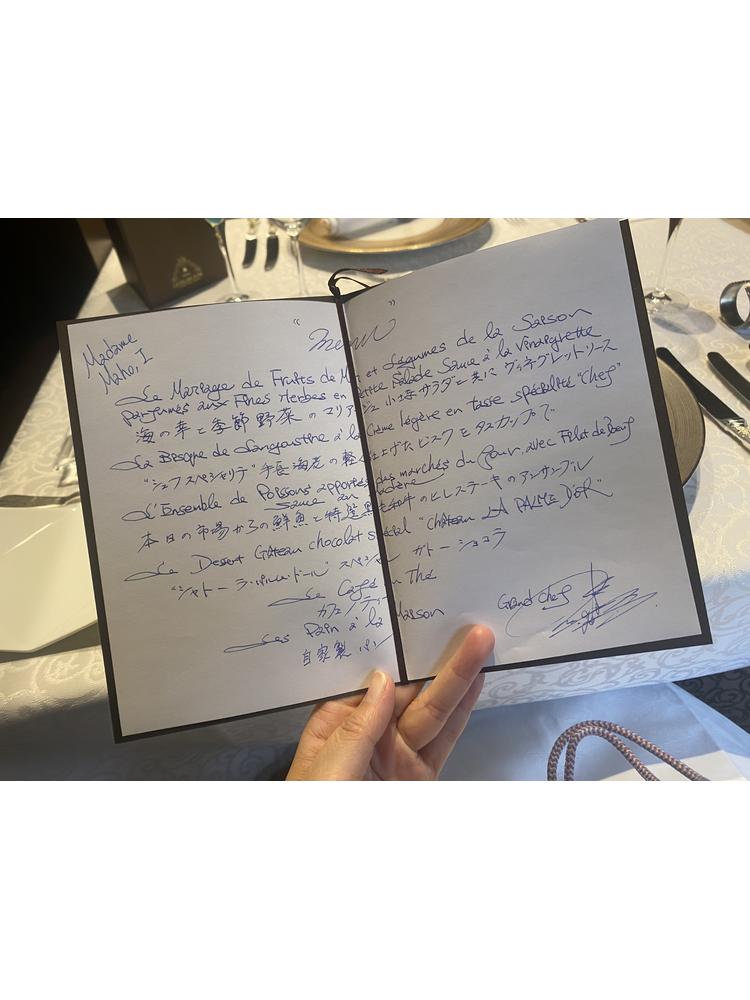 Madame
Maho. I
"Menu"
Le Mariage de Fruits de Mer et Légumes de la Saison
parfumés aux Fines Herbes en petite Salade Sauce à la Vinaigrette
海の幸と季節野菜のマリアージュ 小さなサラダと共に ヴィネグレットソース
La Bisque de Langoustine à la Crème légère en tasse spécialité "Chef"
"シェフスペシャリテ" 手長海老の軽く仕上げたビスクをタスカップで
L'Ensemble de Poissons apportés des marchés du jour avec Filet de Boeuf
Sauce au Madère
本日の市場からの鮮魚と特選黒毛和牛のヒレステーキのアンサンブル
Le Dessert Gâteau chocolat spécial "Château LA PALME D'OR"
"シャトーラ・パルム・ドール" スペシャル ガトーショコラ
Le Café ou Thé
カフェ/ティー
Les Pain à la Maison
自家製パン
Grand chef